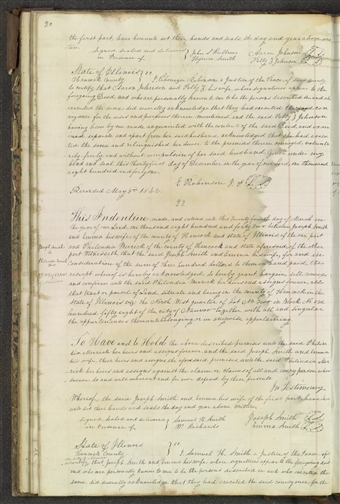 20
the first part, have hereunto set their hands and seals the day and year above written.
Signed sealed and delivered } John S. Fullmer
in presence of } Aaron Johnson
Polly Z Johnson
State of Illinois
Hancock County } I, E. Robinson a Justice of the Peace
to certify that Aaron Johnson and Polly Z his wife, whose signatures appear to the
foregoing Deed and who are personally known to me to be the persons described in and who
executed the same, did severally acknowledge that they had executed the said conveyance
for the uses and purposes therein mentioned, and the said Polly Z Johnson
having been by me made acquainted with the contents of the said deed, and examined
separate and apart from her said husband, acknowledged that she had executed
the same and relinquished her dower to the premises therein conveyed, voluntarily
freely and without compulsion of her said husband, given under my
hand and seal this day of December in the year of our Lord, one thousand
eight hundred and forty one.
E. Robinson J. P.
Recorded May 5th 1842.
22
This Indenture made and entered into this day of March in
the year of our Lord, one thousand eight hundred and forty two between Joseph Smith
and Emma his wife of the county of Hancock and State of Illinois of the one part
and Philinda Merrick of the county of Hancock and State aforesaid of the other
part Witnesseth, that the said Joseph Smith and Emma his wife, for and in
consideration of the sum of three hundred dollars to them in hand paid, the
receipt whereof is hereby acknowledged, do hereby grant bargain, sell, convey
and confirm unto the said Philinda Merrick her heirs and assigns forever, all
that tract or parcel of land, situate and being in the county of Hancock in the
State of Illinois viz: the North West quarter of Lot No four in Block No one
hundred fifty eight of the city of Nauvoo together with all and singular
the appurtenances thereunto belonging or in anywise appertaining
To Have and to Hold the above described premises unto the said Philinda
Merrick her heirs and assigns forever and the said Joseph Smith and Emma
his wife, their heirs and assigns the aforesaid premises unto the said Philinda Merrick
her heirs and assigns against the claim or claims of all and every person whomsoever
do and will warrant and forever defend by these presents
In Testimony
Whereof, the said Joseph Smith and Emma his wife of the first part have hereunto
set their hands and seals the day and year above written.
Signed sealed and delivered } Samuel H. Smith
in presence of } W. Richards
Joseph Smith
Emma Smith
State of Illinois
Hancock County } I Samuel H. Smith a Justice of the Peace
certify that Joseph Smith and Emma his wife whose signatures appear to the foregoing deed
and who are personally known to me to be the persons described in and who executed the
same did severally acknowledge that they had executed the said conveyance for the